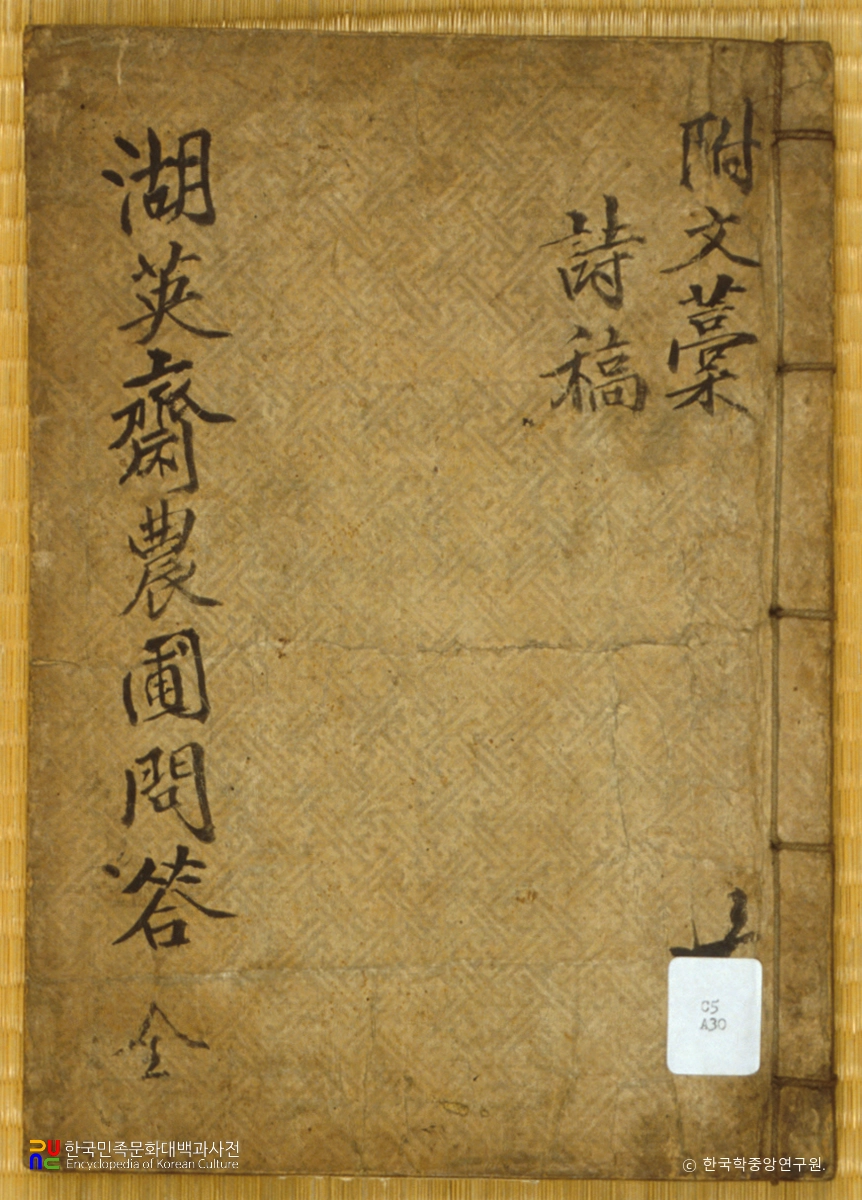 附文藁
詩稿
湖英齋農圃問答 全
C5
A30
한국민족문화대백과사전
Encyclopedia of Korean Culture
ⓒ 한국학중앙연구원.